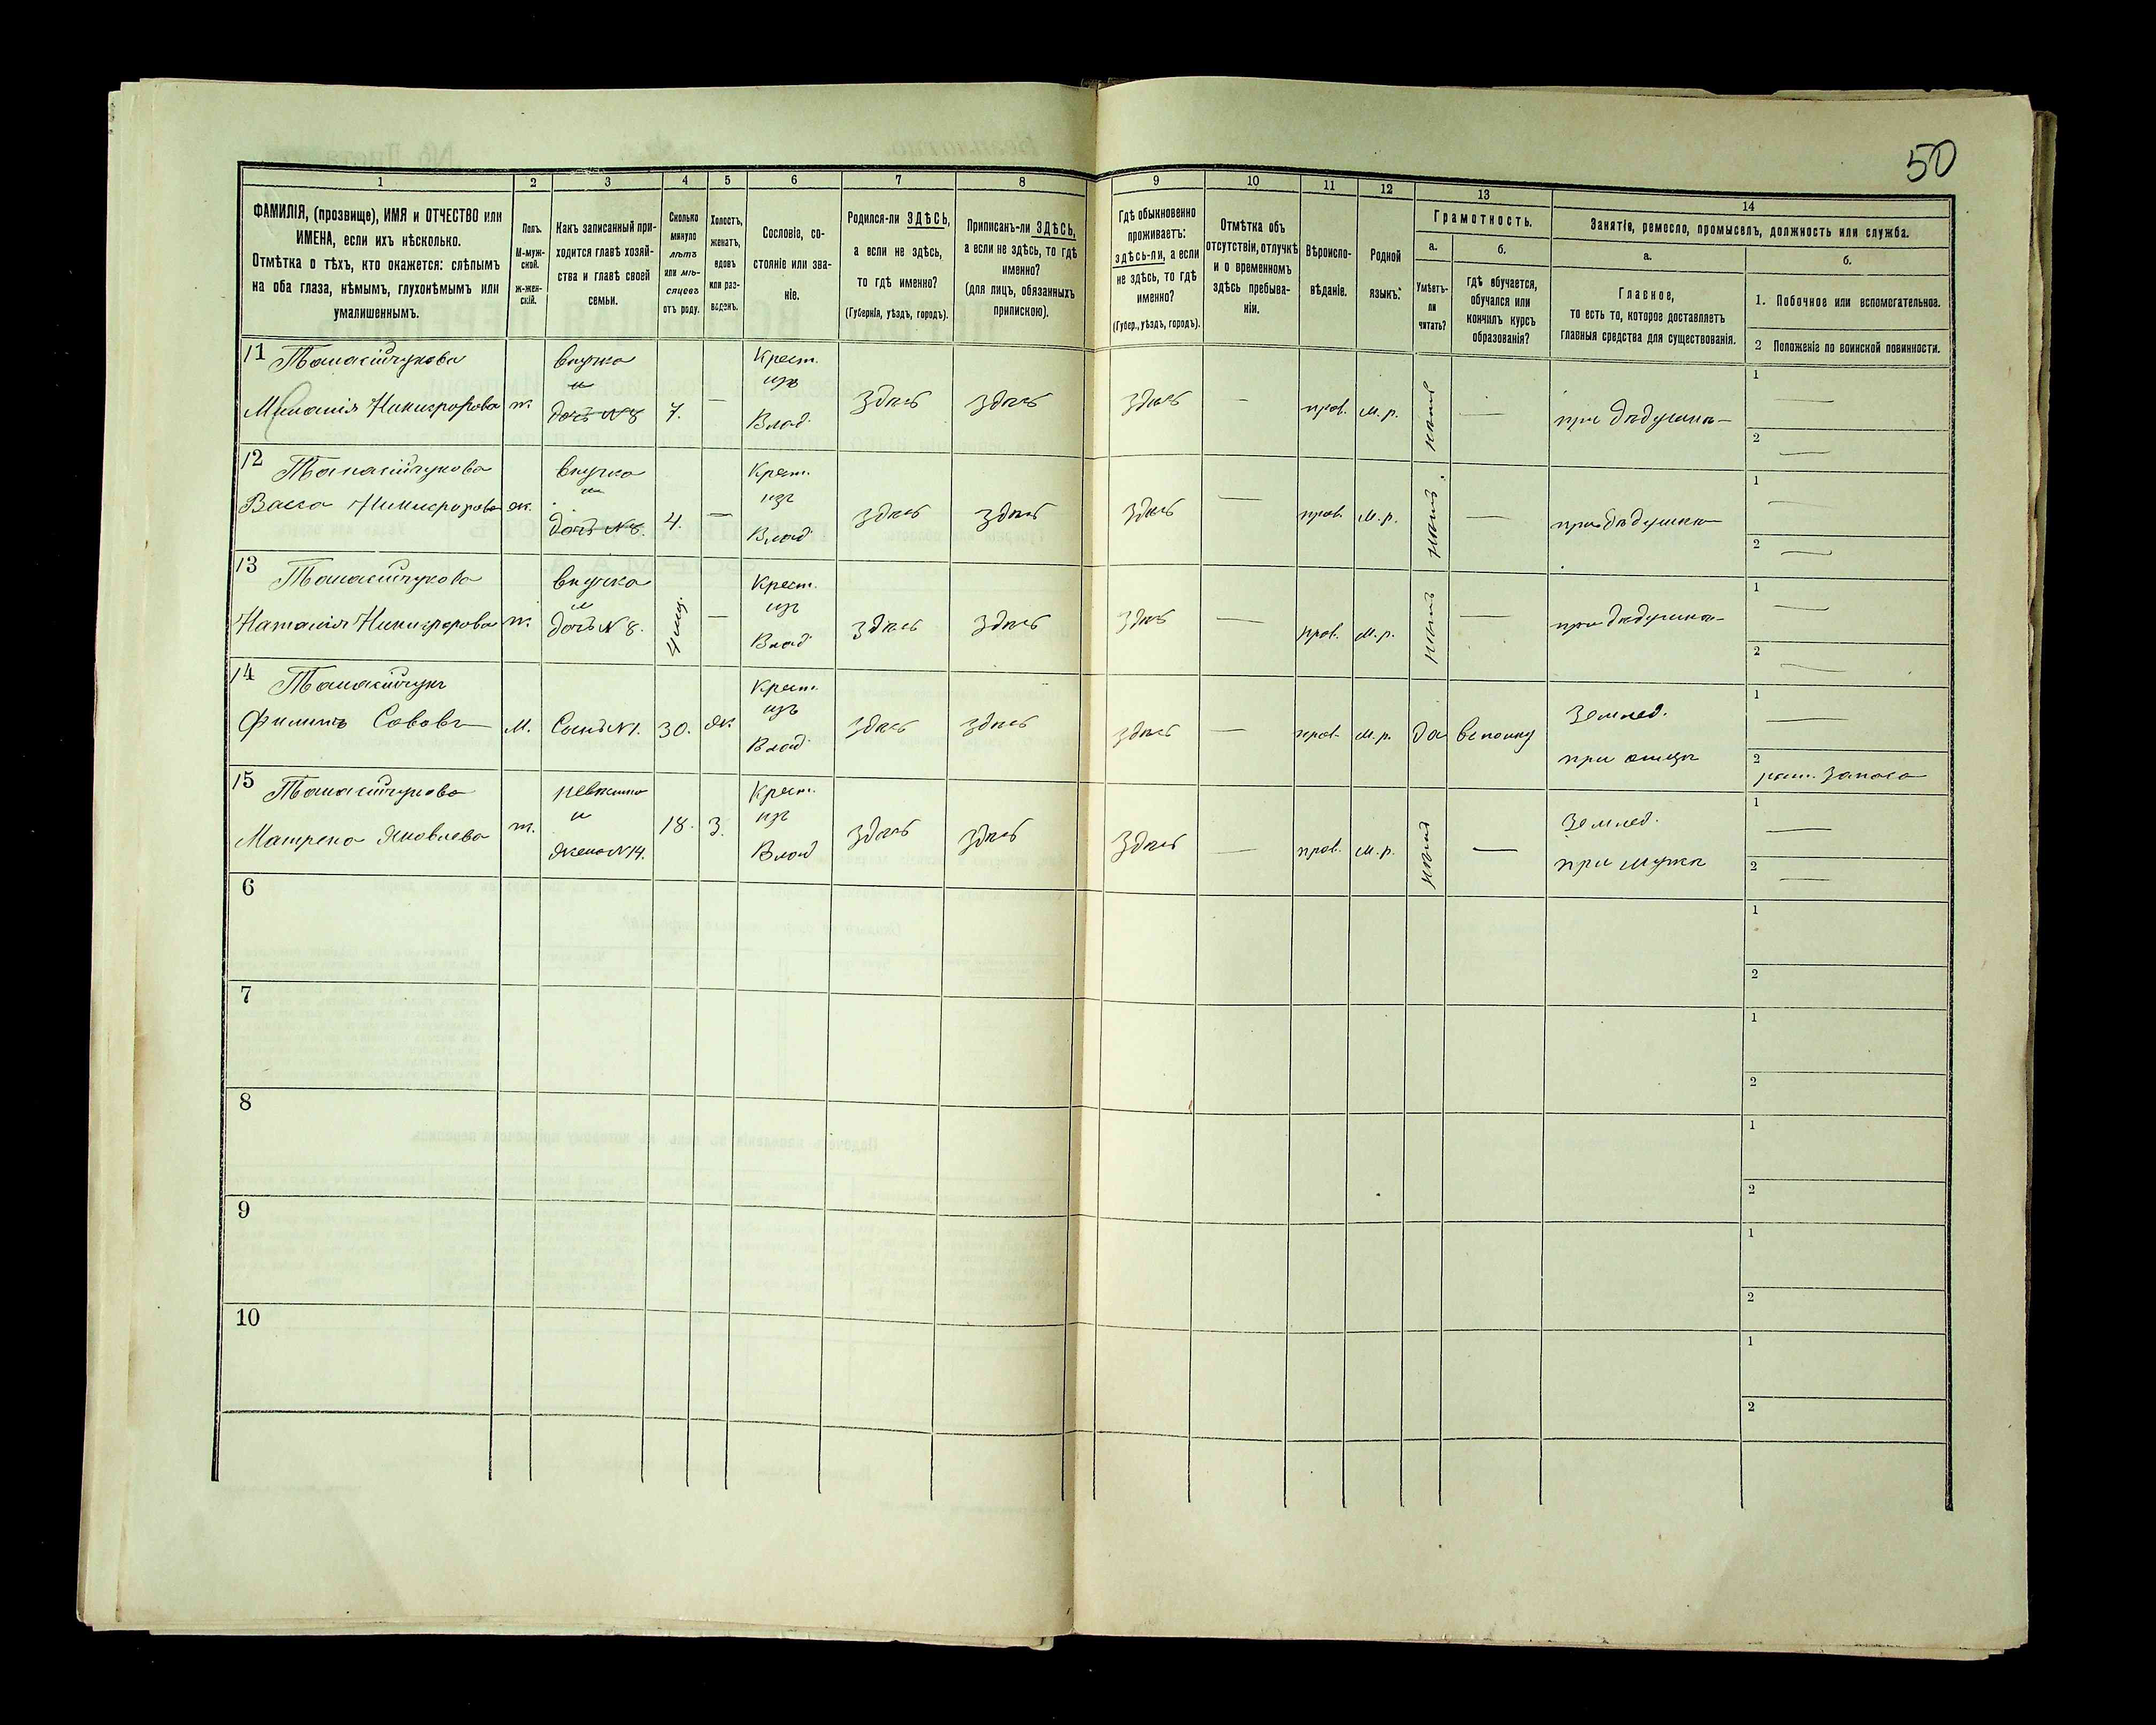 50
1 2 3 4 5 6 7 8 9 10 11 12 13 14
ФАМИЛІЯ, (прозвище), ИМЯ и ОТЧЕСТВО или
ИМЕНА, если ихъ нѣсколько.
Отмѣтка о тѣхъ, кто окажется: слѣпымъ
на оба глаза, нѣмымъ, глухонѣмымъ или
умалишеннымъ.
Полъ.
М-муж-
ской.
ж-жен-
скій.
Какъ записанный при-
ходится главѣ хозяй-
ства и главѣ своей
семьи.
Сколько
минуло
лѣтъ
или мѣ-
сяцевъ
отъ роду.
Холостъ,
женатъ,
вдовъ
или раз-
веденъ.
Сословіе, со-
стояніе или зва-
ніе.
Родился-ли ЗДѢСЬ,
а если не здѣсь,
то гдѣ именно?
(Губернія, уѣздъ, городъ).
Приписанъ-ли ЗДѢСЬ,
а если не здѣсь, то гдѣ
именно?
(для лицъ, обязанныхъ
припискою).
Гдѣ обыкновенно
проживаетъ:
здѣсь-ли, а если
не здѣсь, то гдѣ
именно?
(Губер., уѣздъ, городъ).
Отмѣтка объ
отсутствіи, отлучкѣ
и о временномъ
здѣсь пребыва-
ніи.
Вѣроиспо-
вѣданіе.
Родной
языкъ.
Грамотность.
а.
Умѣетъ-
ли
читать?
б.
гдѣ обучается,
обучался или
кончилъ курсъ
образованія?
Занятіе, ремесло, промыселъ, должность или служба.
а.
Главное,
то есть то, которое доставляетъ
главныя средства для существованія.
б.
1. Побочное или вспомогательное.
2 Положеніе по воинской повинности.
11
внучка
и
дочь N 8
7.
Крест.
изъ
Влад.
здѣсь здѣсь здѣсь
прав. м.р. нѣтъ
при дѣдушкѣ
1
2
12
Васса Никифорова ж.
внучка
и
дочь N 8.
4.
Крест.
изъ
Влад.
здѣсь здѣсь здѣсь
прав. м.р. нѣтъ
при дѣдушкѣ
1
2
13
Наталія Никифорова ж.
внучка
и
дочь N 8.
4 мѣс.
Крест.
изъ
Влад.
здѣсь здѣсь здѣсь
прав. м.р. нѣтъ
при дѣдушкѣ
1
2
14
Филипъ Саввовъ м.
Сынъ N 1. 30. ж.
Крест.
изъ
Влад.
здѣсь здѣсь здѣсь
прав. м.р. да
Землед.
при отцѣ
1
2
запаса
15
Матрена Яковлева ж.
невѣстка
и
жена N 14.
18. З.
Крест.
изъ
Влад.
здѣсь здѣсь здѣсь
прав. м.р. нѣтъ
Землед.
при мужѣ
1
2
6
1
2
7
1
2
8
1
2
9
1
2
10
1
2